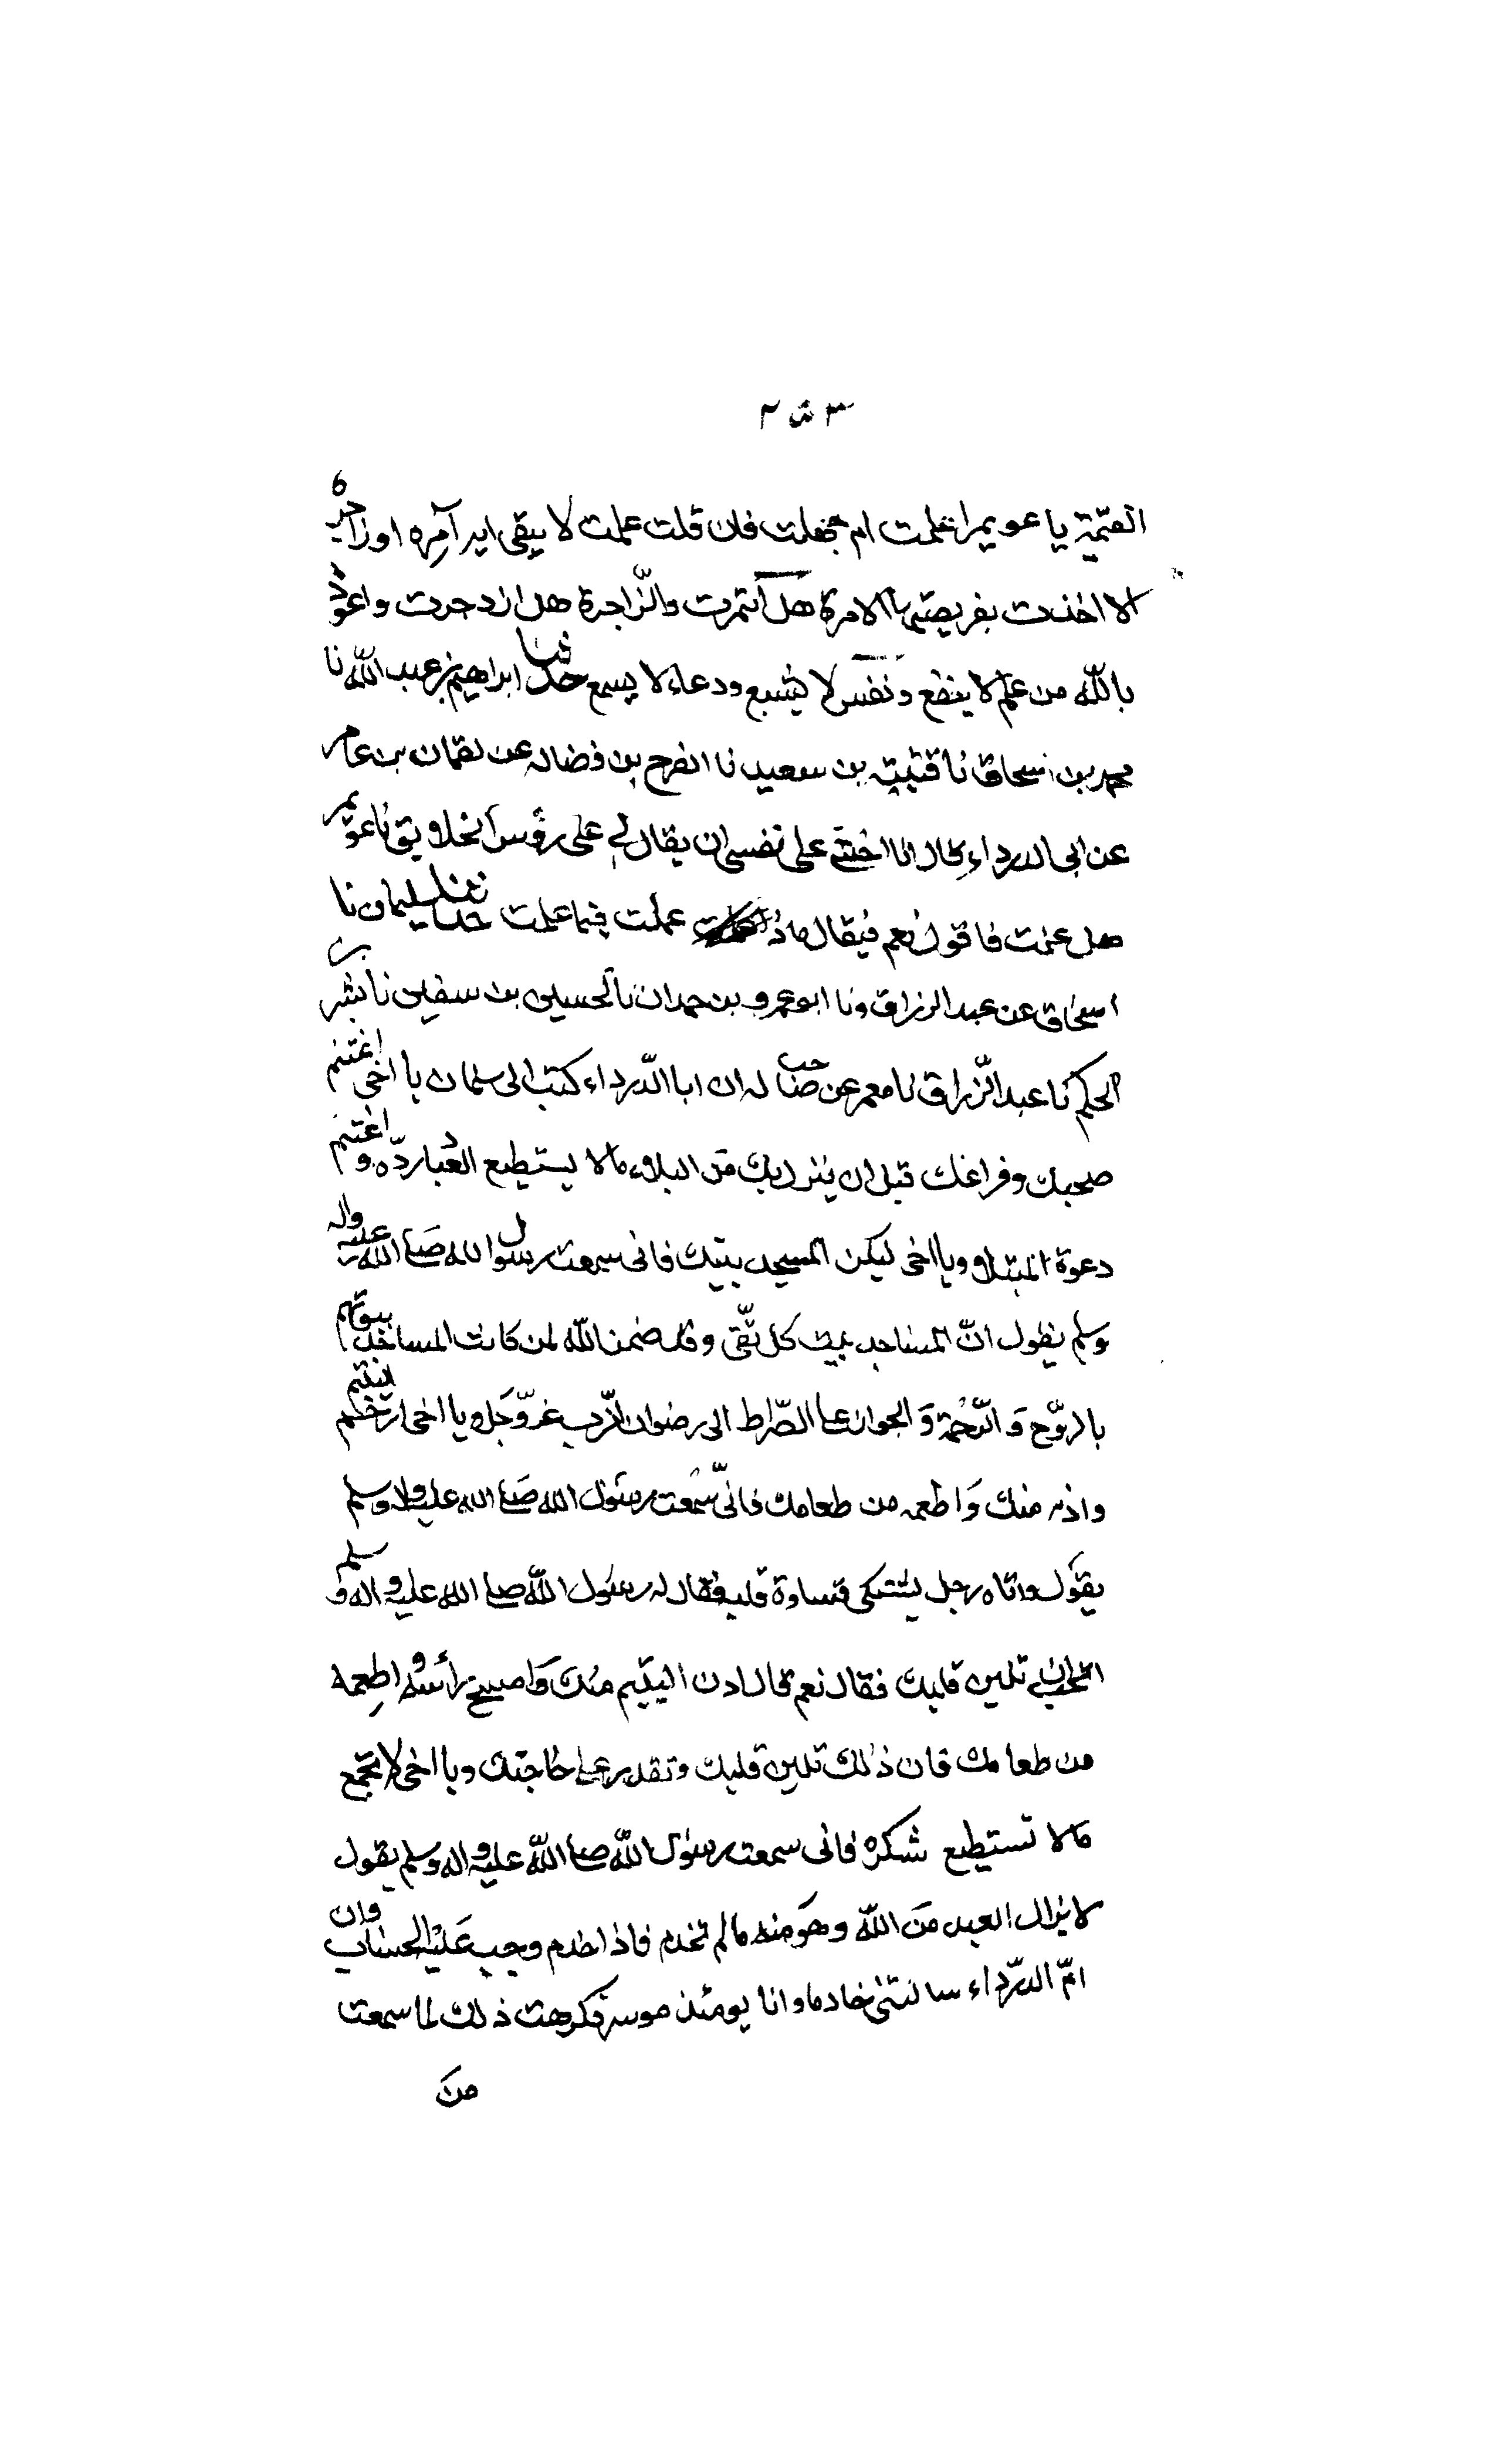 القيمة يا عويمر اعلمت ام جهلت فان قلت علمت لا يبقى اية آمره او زاجره
الا اخذت بفريضتها الامرة هل ائتمرت والزّاجرة هل ازدجرت واعوذ
باللّه من علم لا ينفع ونفس لا تشبع ودعاء لا يسمع حدثنا ابراهيم بن عبد اللّه نا
محمد بن اسحاق نا قتيبة بن سعيد نا الفرج بن فضاله عن لقمان بن عامر
عن ابى الدرداء قال انما اخشى على نفسى ان يقال لى على رؤس الخلايق يا عويمر
هل علمت فاقول نعم فيقال ماذا عملت فيما علمت حدثنا سليمان نا
اسحاق عن عبد الرزاق ونا ابو عمرو بن حمدان نا الحسين بن سفين نا بشر بن
الحكم نا عبد الرّزاق نا معمر عن صاحب له ان ابا الدّرداء كتب الى سلمان يا اخى اغتنم
صحبك وفراغك قبل ان ينزل بك من البلاء مالا يستطيع العباد ردّه واغتنم
دعوة المبتلا ويا اخى ليكن المسجد بيتك فانى سمعت رسول الله صلى الله عليه واله
وسلم يقول انّ المساجد بيت كل تقّى وقد ضمن اللّه لمن كانت المساجد بيوتهم
بالروّح وَالرّحمة وَالجواز على الصّراط الى رضوان الرّب عزّ وّجل ويا اخى ارحم اليتيم
وادنه منك وَاطعمه من طعامك فانّى سمعت رسول الله صلى الله عليه واله وسلم
يقول واتاه رجل يشتكى قساوة قلبه فقال له رسول اللّه صلى الله عليه واله وسلم
اتحب ان تلين قلبك فقال نعم قال ادن اليتيم منك وَامسح رأسه واطعمه
من طعامك فان ذلك تلين قلبك وتقدر على حاجتك ويا اخى لا تجمع
مالا تستطيع شكره فانى سمعت رسول اللّه صلى اللّه عليه واله وسلم يقول
لا يزال العبد مَن اللّه وهَو منه مالم تخدم فاذا خدم وجب عَليه الحساب وان
امّ الدرّداء سالتنى خادما وانا يومئذ موسر فكرهت ذلك لما سمعت
من